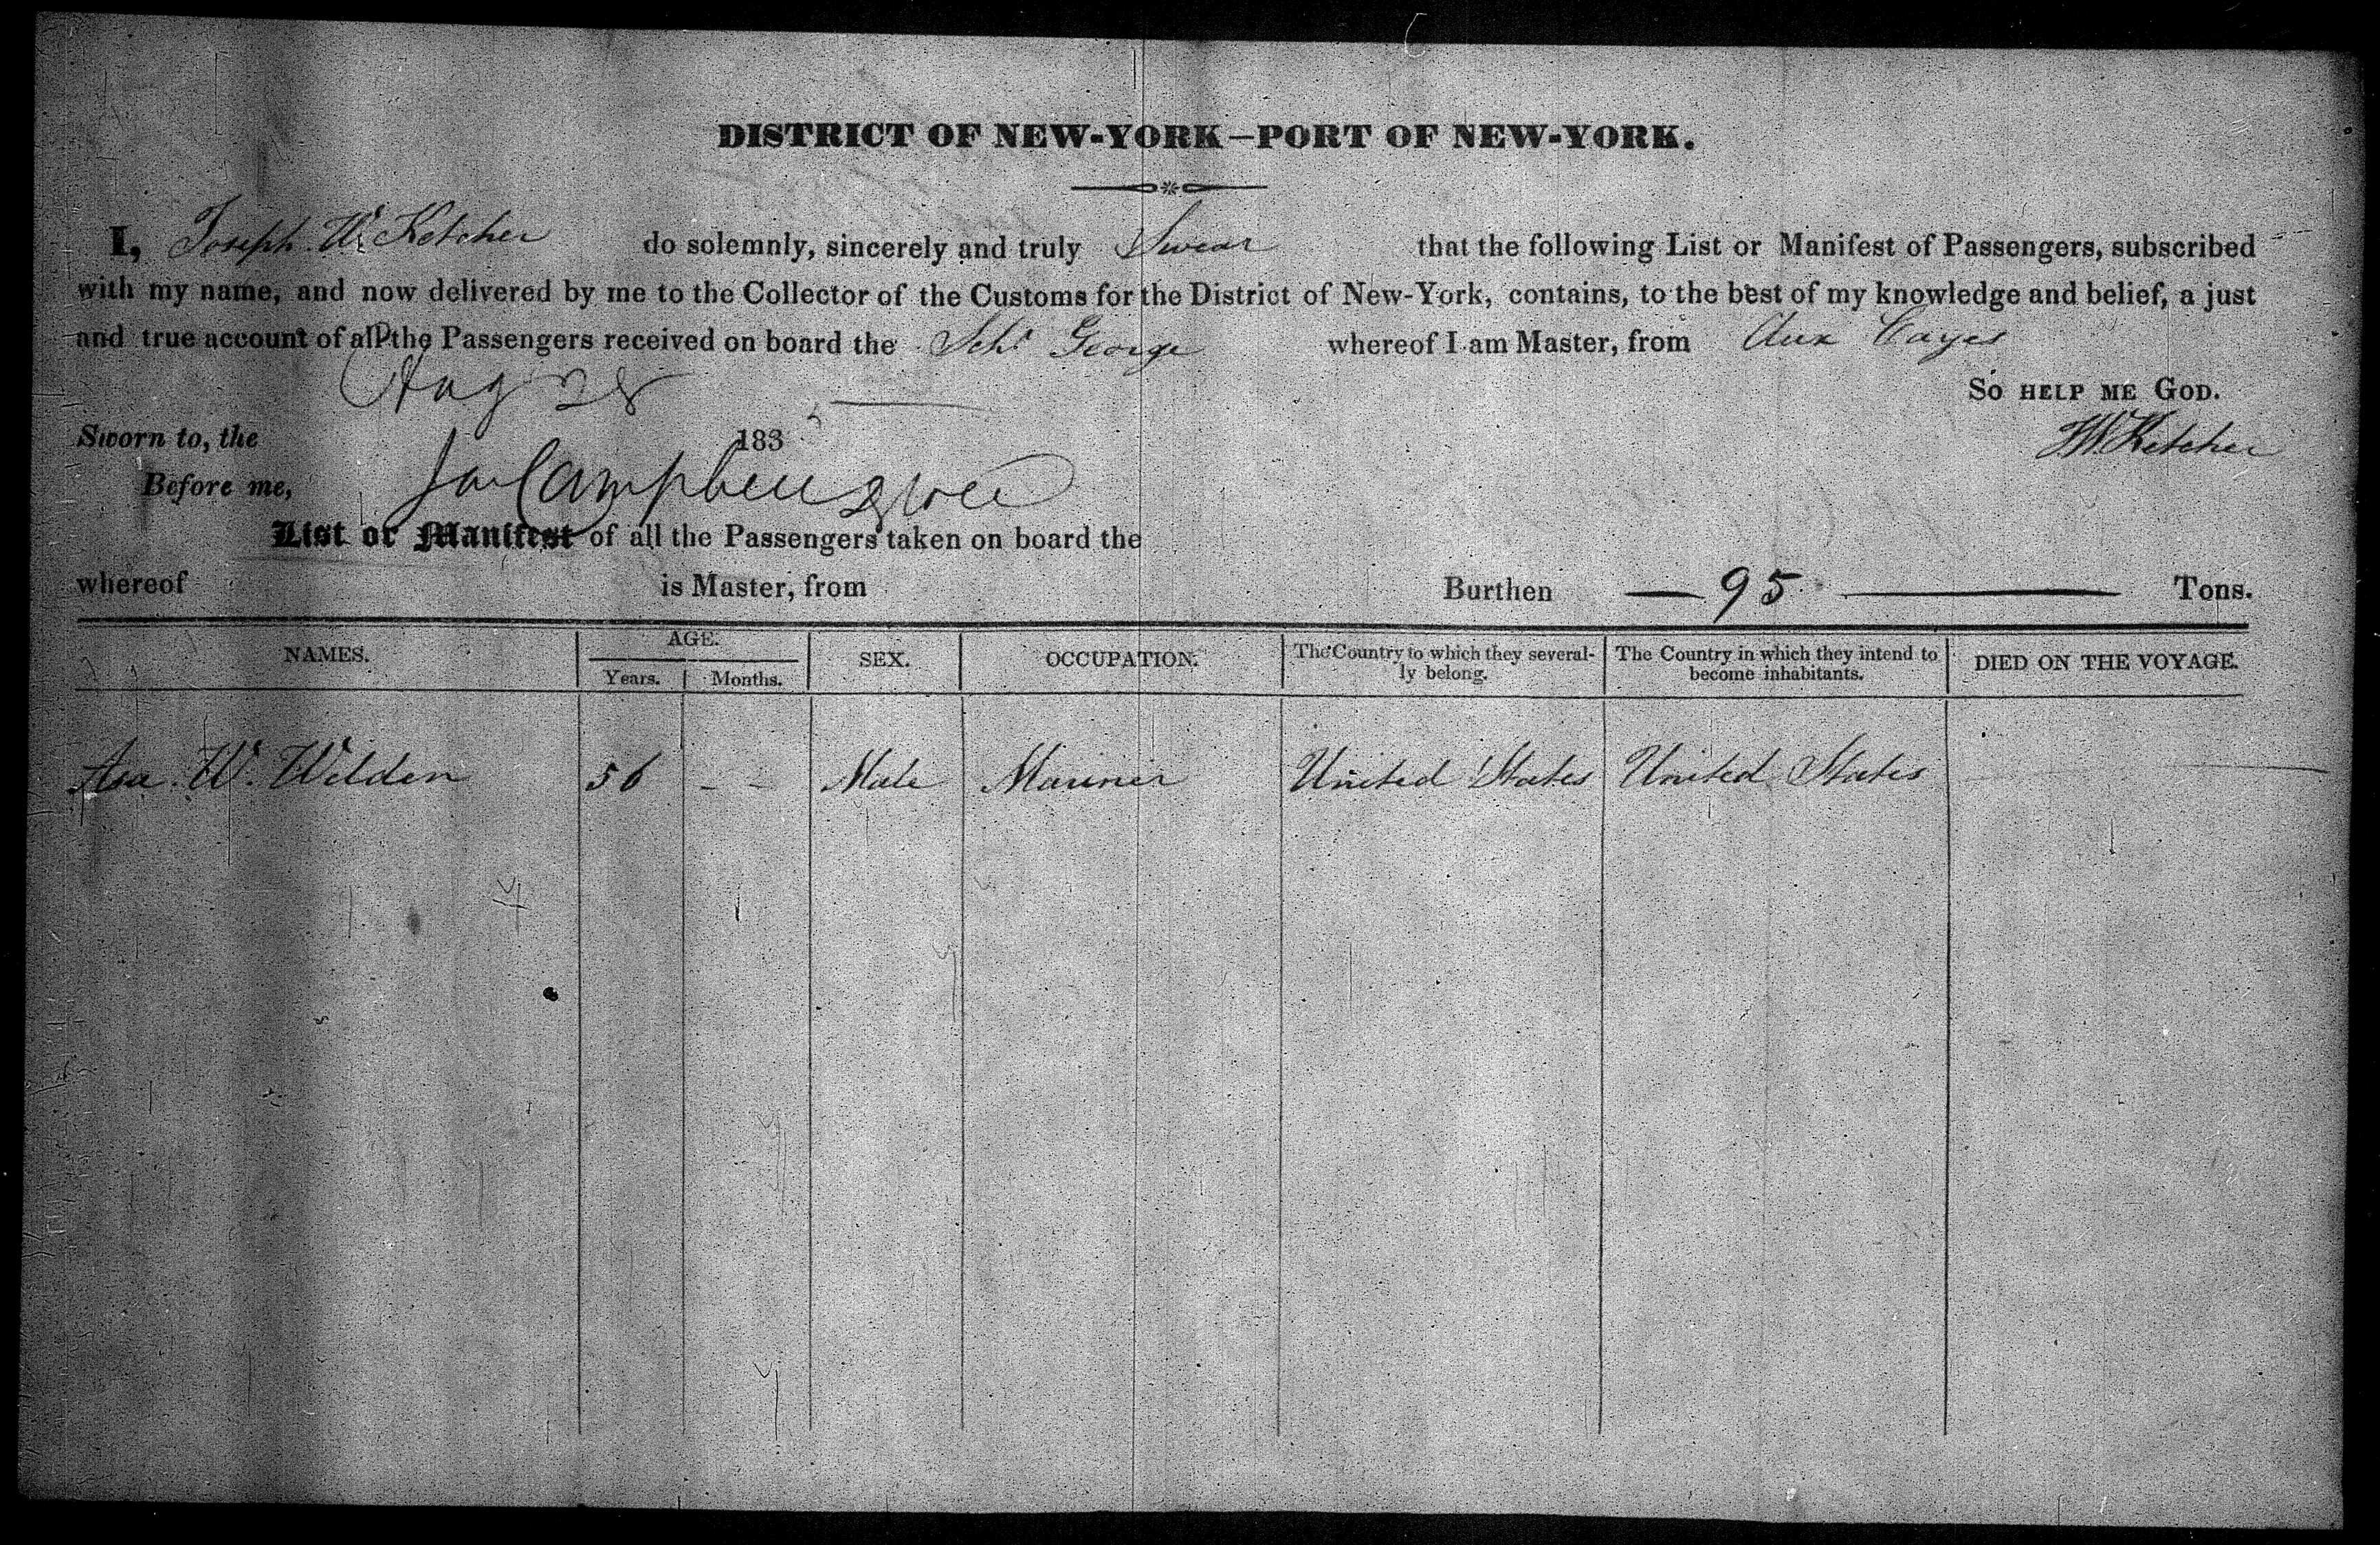 DISTRICT OF NEW-YORK—PORT OF NEW-YORK.
I, Joseph W. Ketcher do solemnly, sincerely and truly Swear that the following List or Manifest of Passengers, subscribed
with my name, and now delivered by me to the Collector of the Customs for the District of New-York, contains, to the best of my knowledge and belief, a just
and true account of all the Passengers received on board the Schr George whereof I am Master, from Aux Cayes
SO HELP ME GOD.
Aug 28
Sworn to, the 183
JW Ketcher
Before me, Campbell
List or Manifest of all the Passengers taken on board the
whereof is Master, from Burthen — 95 — Tons.
NAMES. AGE. SEX. OCCUPATION. The Country to which they several- The Country in which they intend to DIED ON THE VOYAGE.
Years. Months. ly belong. become inhabitants.
Asa. W. Wilden 56 - - Male Mariner United States United States